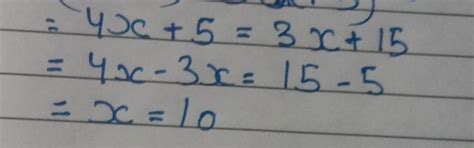 = 4x + 5 = 3x + 15
= 4x - 3x = 15 - 5
= x = 10